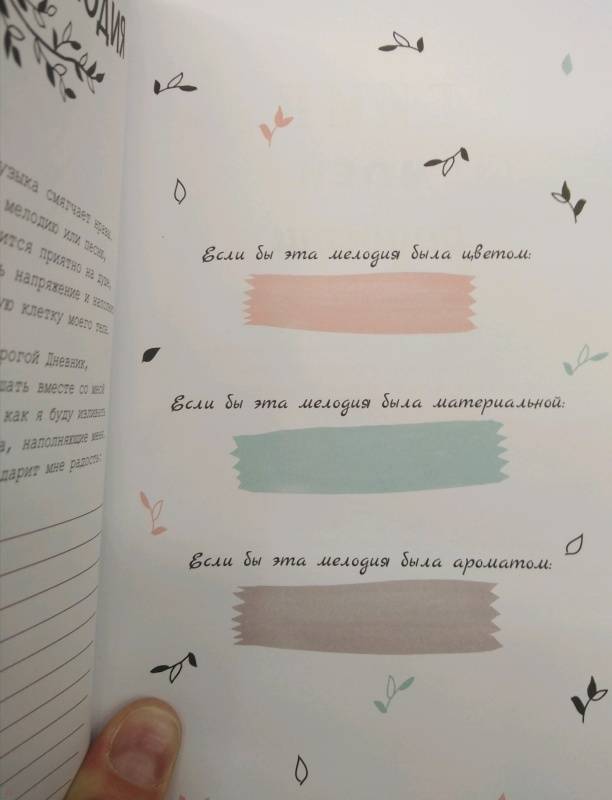 смягчает нравы.
мелодию или песню,
приятно на душе,
напряжение и
клетку моего тела.
Дневник,
вместе со мной
как я буду изливать
наполняющие меня.
дарит мне радость:
Если бы эта мелодия была цветом:
Если бы эта мелодия была материальной:
Если бы эта мелодия была ароматом: